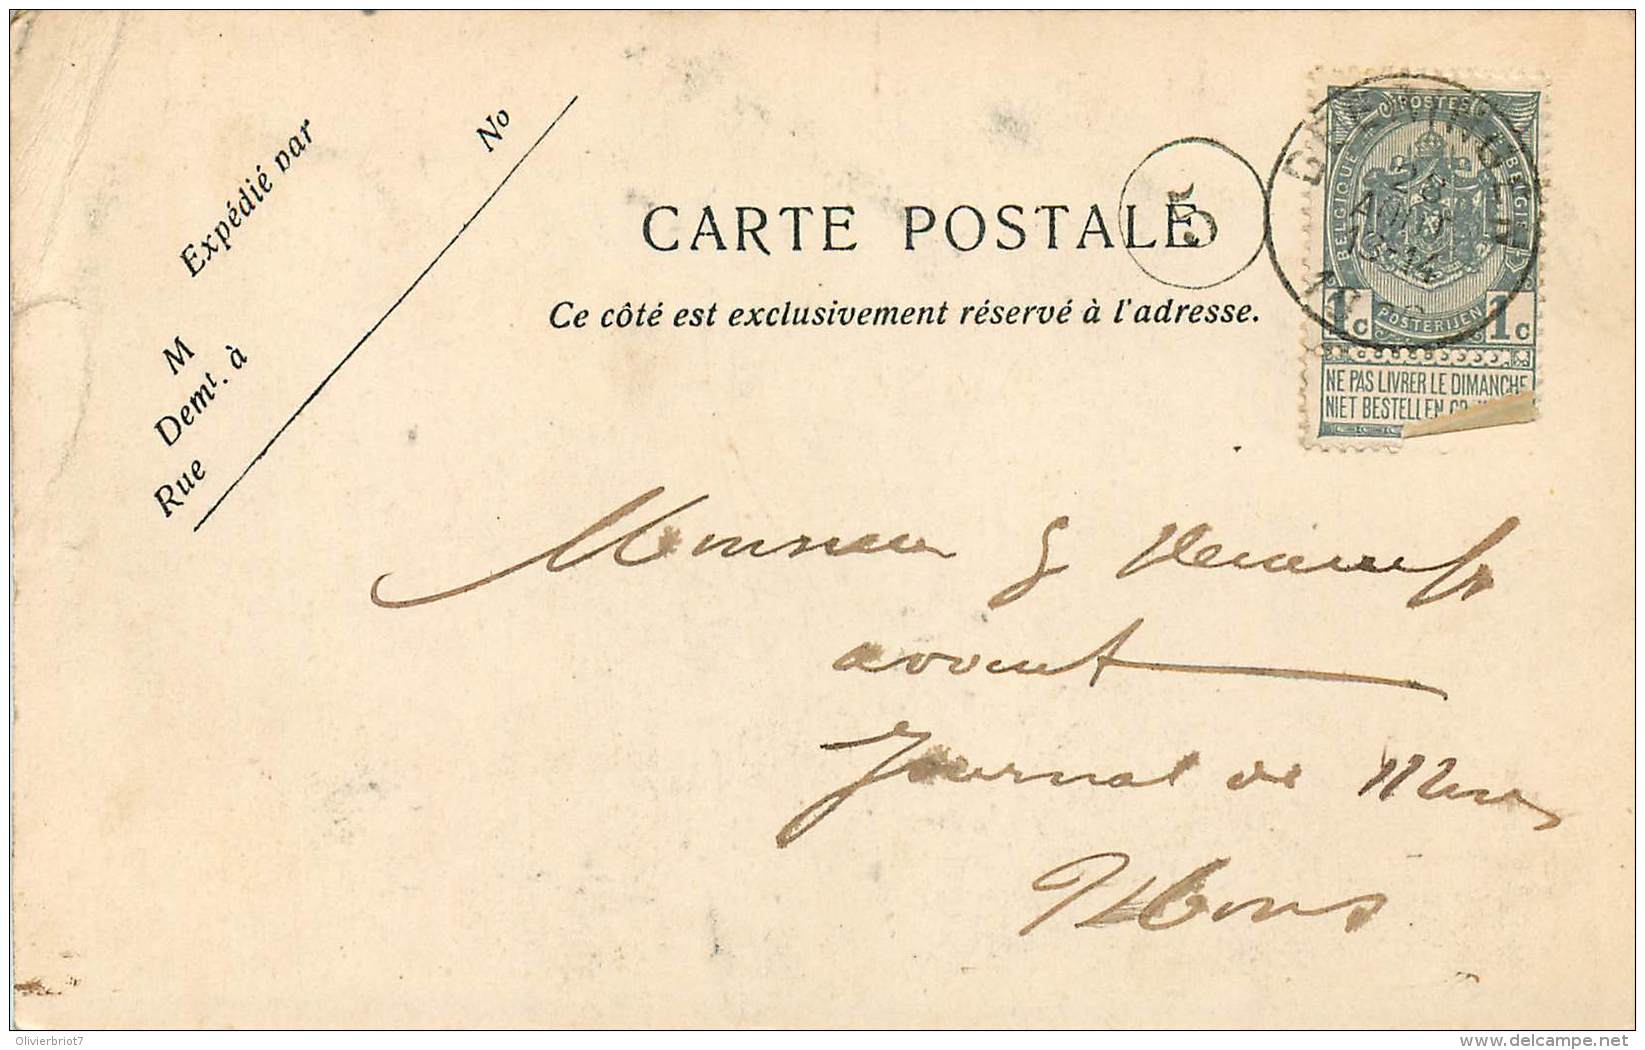 Expédié par
No
M
Demt. à
Rue
CARTE POSTALE
5
Ce côté est exclusivement réservé à l'adresse.
POSTES
BELGIQUE
BELGIE
25
AOUT
1 c POSTERIJEN 1 c
NE PAS LIVRER LE DIMANCHE
NIET BESTELLEN
Monsieur G
avocat
Journal de Mons
Mons
Olivierbriot7
delcampe.net